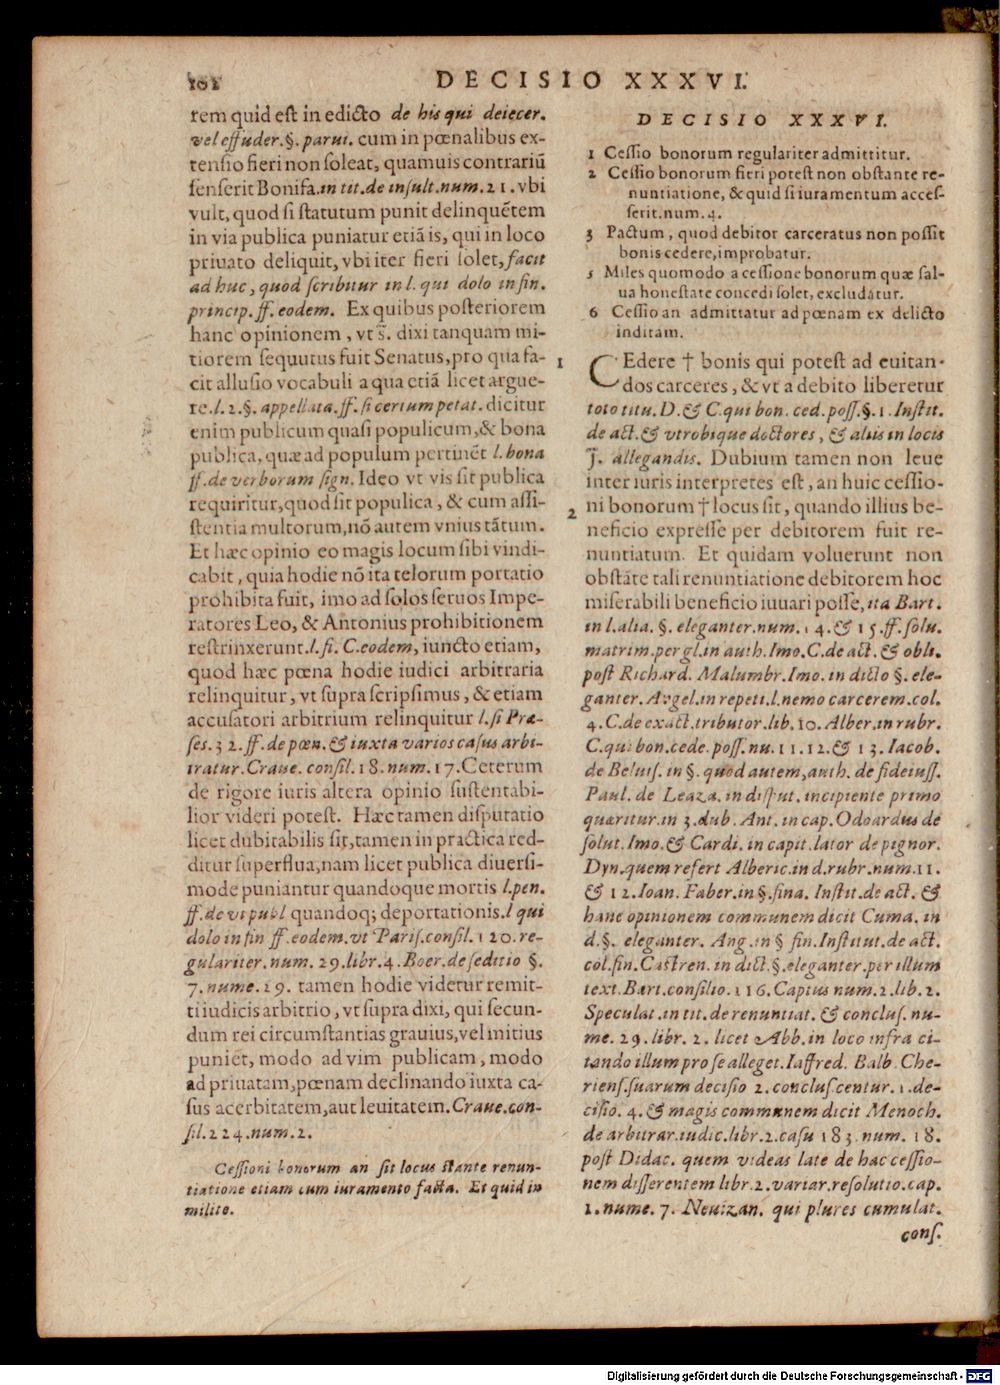 102
DECISIO XXXVI.
rem quid est in edicto de his qui deiecer.
vel effuder.§. parui. cum in pœnalibus ex-
tensio fieri non soleat, quamuis contrariũ
senserit Bonifa.in tit.de insult.num.21.vbi
vult, quod si statutum punit delinquẽtem
in via publica puniatur etiã is, qui in loco
priuato deliquit, vbi iter fieri solet, facit
ad huc, quod scribitur in l. qui dolo in fin.
princip. ff. eodem. Ex quibus posteriorem
hanc opinionem, vt s̃. dixi tanquam mi-
tiorem sequutus fuit Senatus, pro qua fa-
cit allusio vocabuli a qua etiã licet argue-
re.l.2.§.appellata.ff.si certum petat. dicitur
enim publicum quasi populicum,& bona
publica, quæ ad populum pertinẽt l. bona
ff.de verborum sign. Ideo vt vis sit publica
requiritur, quod sit populica, & cum assi-
stentia multorum,nõ autem vnius tãtum.
Et hæc opinio eo magis locum sibi vindi-
cabit, quia hodie nõ ita telorum portatio
prohibita fuit, imo ad solos seruos Impe-
ratores Leo, & Antonius prohibitionem
restrinxerunt.l.si. C.eodem, iuncto etiam,
quod hæc pœna hodie iudici arbitraria
relinquitur, vt supra scripsimus, & etiam
accusatori arbitrium relinquitur l.si Præ-
ses.32.ff.de pœn.& iuxta varios casus arbi-
tratur.Craue. consil.18.num.17.Ceterum
de rigore iuris altera opinio sustentabi-
lior videri potest. Hæc tamen disputatio
licet dubitabilis sit,tamen in practica red-
ditur superflua,nam licet publica diuersi-
mode puniantur quandoque mortis l.pen.
ff.de vi publ quandoq; deportationis.l qui
dolo in fin ff.eodem.vt Paris.consil.120.re-
gulariter.num.29.libr.4.Boer.de seditio §.
7.nume.19. tamen hodie videtur remit-
ti iudicis arbitrio, vt supra dixi, qui secun-
dum rei circumstantias grauius,vel mitius
puniẽt, modo ad vim publicam, modo
ad priuatam,pœnam declinando iuxta ca-
sus acerbitatem,aut leuitatem.Craue.con-
sil.224.num.2.
Cessioni bonorum an sit locus stante renun-
tiatione etiam cum iuramento facta. Et quid in
milite.
DECISIO XXXVI.
1 Cessio bonorum regulariter admittitur.
2 Cessio bonorum fieri potest non obstante re-
nuntiatione, & quid si iuramentum acces-
serit.num.4.
3 Pactum, quod debitor carceratus non possit
bonis cedere, improbatur.
5 Miles quomodo a cessione bonorum quæ sal-
ua honestate concedi solet, excludatur.
6 Cessio an admittatur ad pœnam ex delicto
inditam.
1 CEdere † bonis qui potest ad euitan-
dos carceres, & vt a debito liberetur
toto titu.D.& C.qui bon. ced.poss.§.1.Instit.
de act.& vtrobique doctores, & alijs in locis
J̃. allegandis. Dubium tamen non leue
inter iuris interpretes est, an huic cessio-
2 ni bonorum † locus sit, quando illius be-
neficio expresse per debitorem fuit re-
nuntiatum. Et quidam voluerunt non
obstãte tali renuntiatione debitorem hoc
miserabili beneficio iuuari posse, ita Bart.
in l.alia. §. eleganter.num.14.& 15.ff.solu.
matrim.per gl.in auth.Imo.C.de act. & obli.
post Richard. Malumbr.Imo.in dicto §.ele-
ganter.Angel.in repeti.l.nemo carcerem.col.
4.C.de exact.tributor.lib.10.Alber.in rubr.
C.qui bon.cede.poss.nu.11.12.& 13.Iacob.
de Beluis. in §. quod autem,auth. de fideiuss.
Paul. de Leaza. in disput. incipiente primo
quæritur.in 3.dub. Ant. in cap.Odoardus de
solut.Imo.& Cardi.in capit.lator de pignor.
Dyn.quem refert Alberic.in d.rubr.num.11.
& 12.Ioan. Faber.in §.fina. Instit.de act. &
hanc opinionem communem dicit Cuma. in
d.§. eleganter. Ang.in § fin.Institut.de act.
col.fin.Castren. in dict.§.eleganter.per illum
text.Bart.consilio.116.Capius num.2.lib.2.
Speculat.in tit.de renuntiat. & conclus. nu-
me. 29. libr. 2. licet Abb.in loco infra ci-
tando illum pro se alleget. Iaffred. Balb. Che-
riens.suarum decisio 2.conclus.centur.1.de-
cisio. 4.& magis communem dicit Menoch.
de arbitrar.iudic.libr.2.casu 183.num. 18.
post Didac. quem videas late de hac cessio-
nem disserentem libr.2.variar.resolutio.cap.
1.nume. 7. Neuizan. qui plures cumulat.
cons.
Digitalisierung gefördert durch die Deutsche Forschungsgemeinschaft - DFG